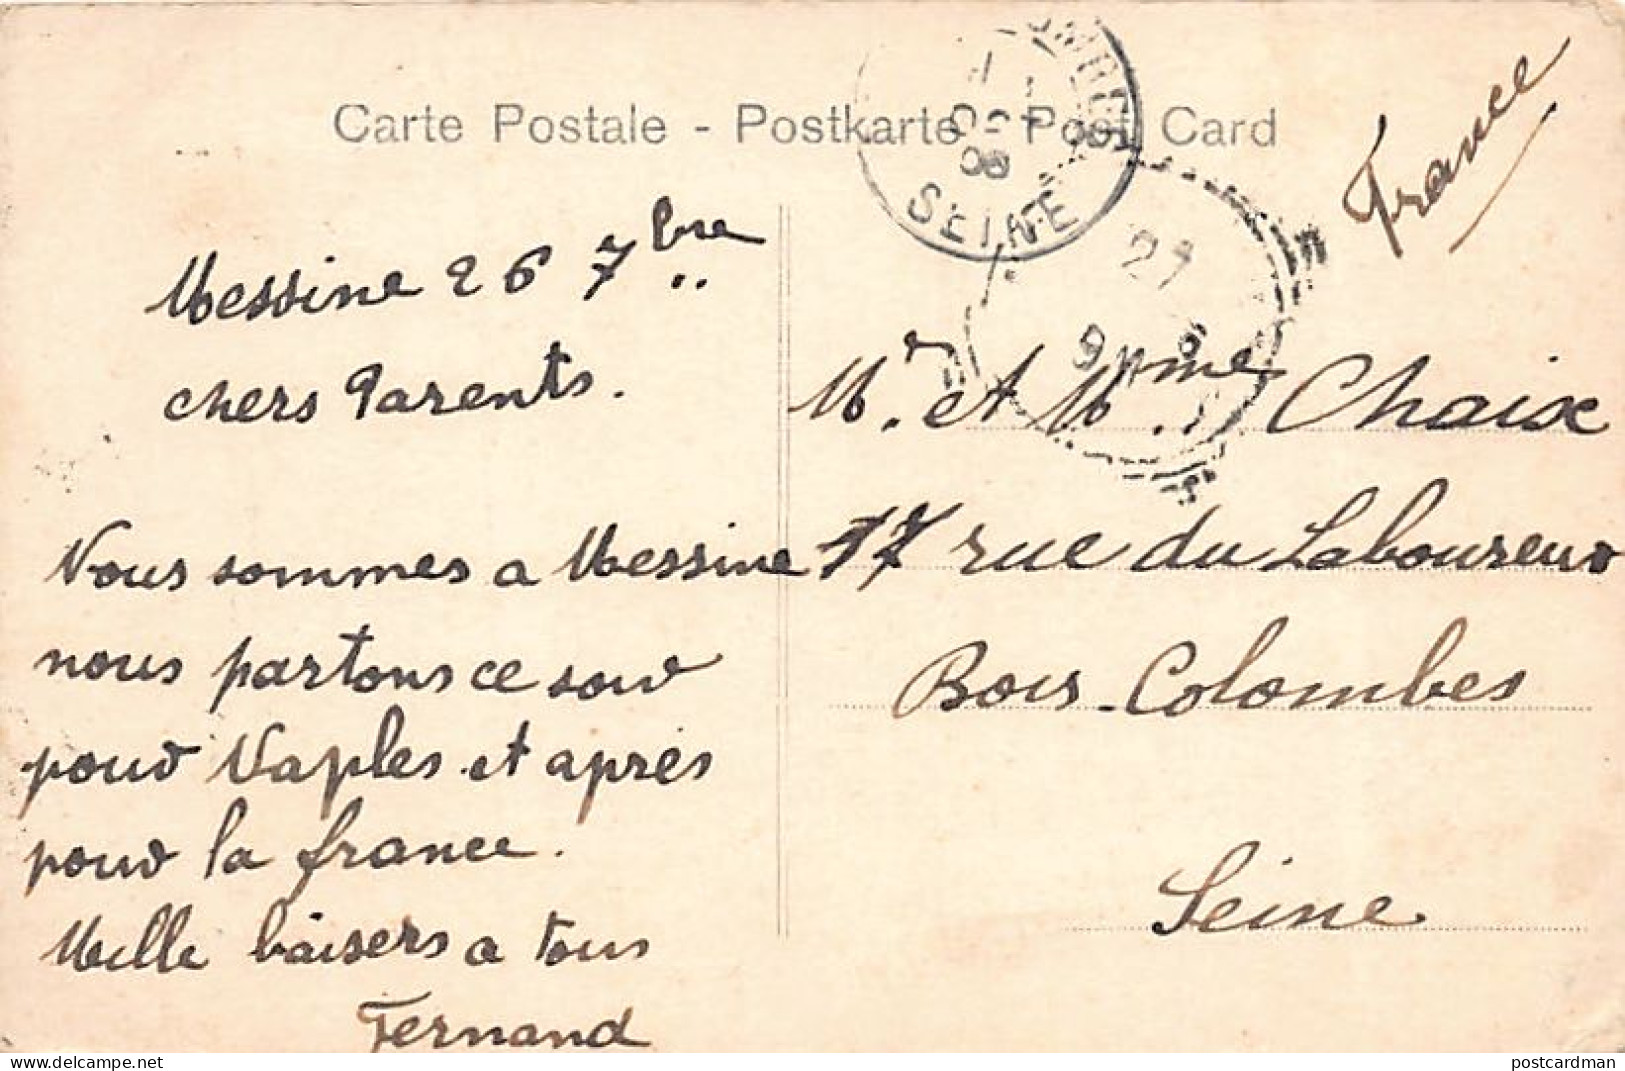 Carte Postale - Postkarte - Post Card
France
SEINE
27
Messine 26 7bre
chers Parents.
Nous sommes a Messine
nous partons ce soir
pour Naples et après
pour la france.
Mille baisers a tous
Fernand
Mr. et Mme. Chaix
17 rue du Laboureur
Bois-Colombes
Seine
delcampe.net
postcardman